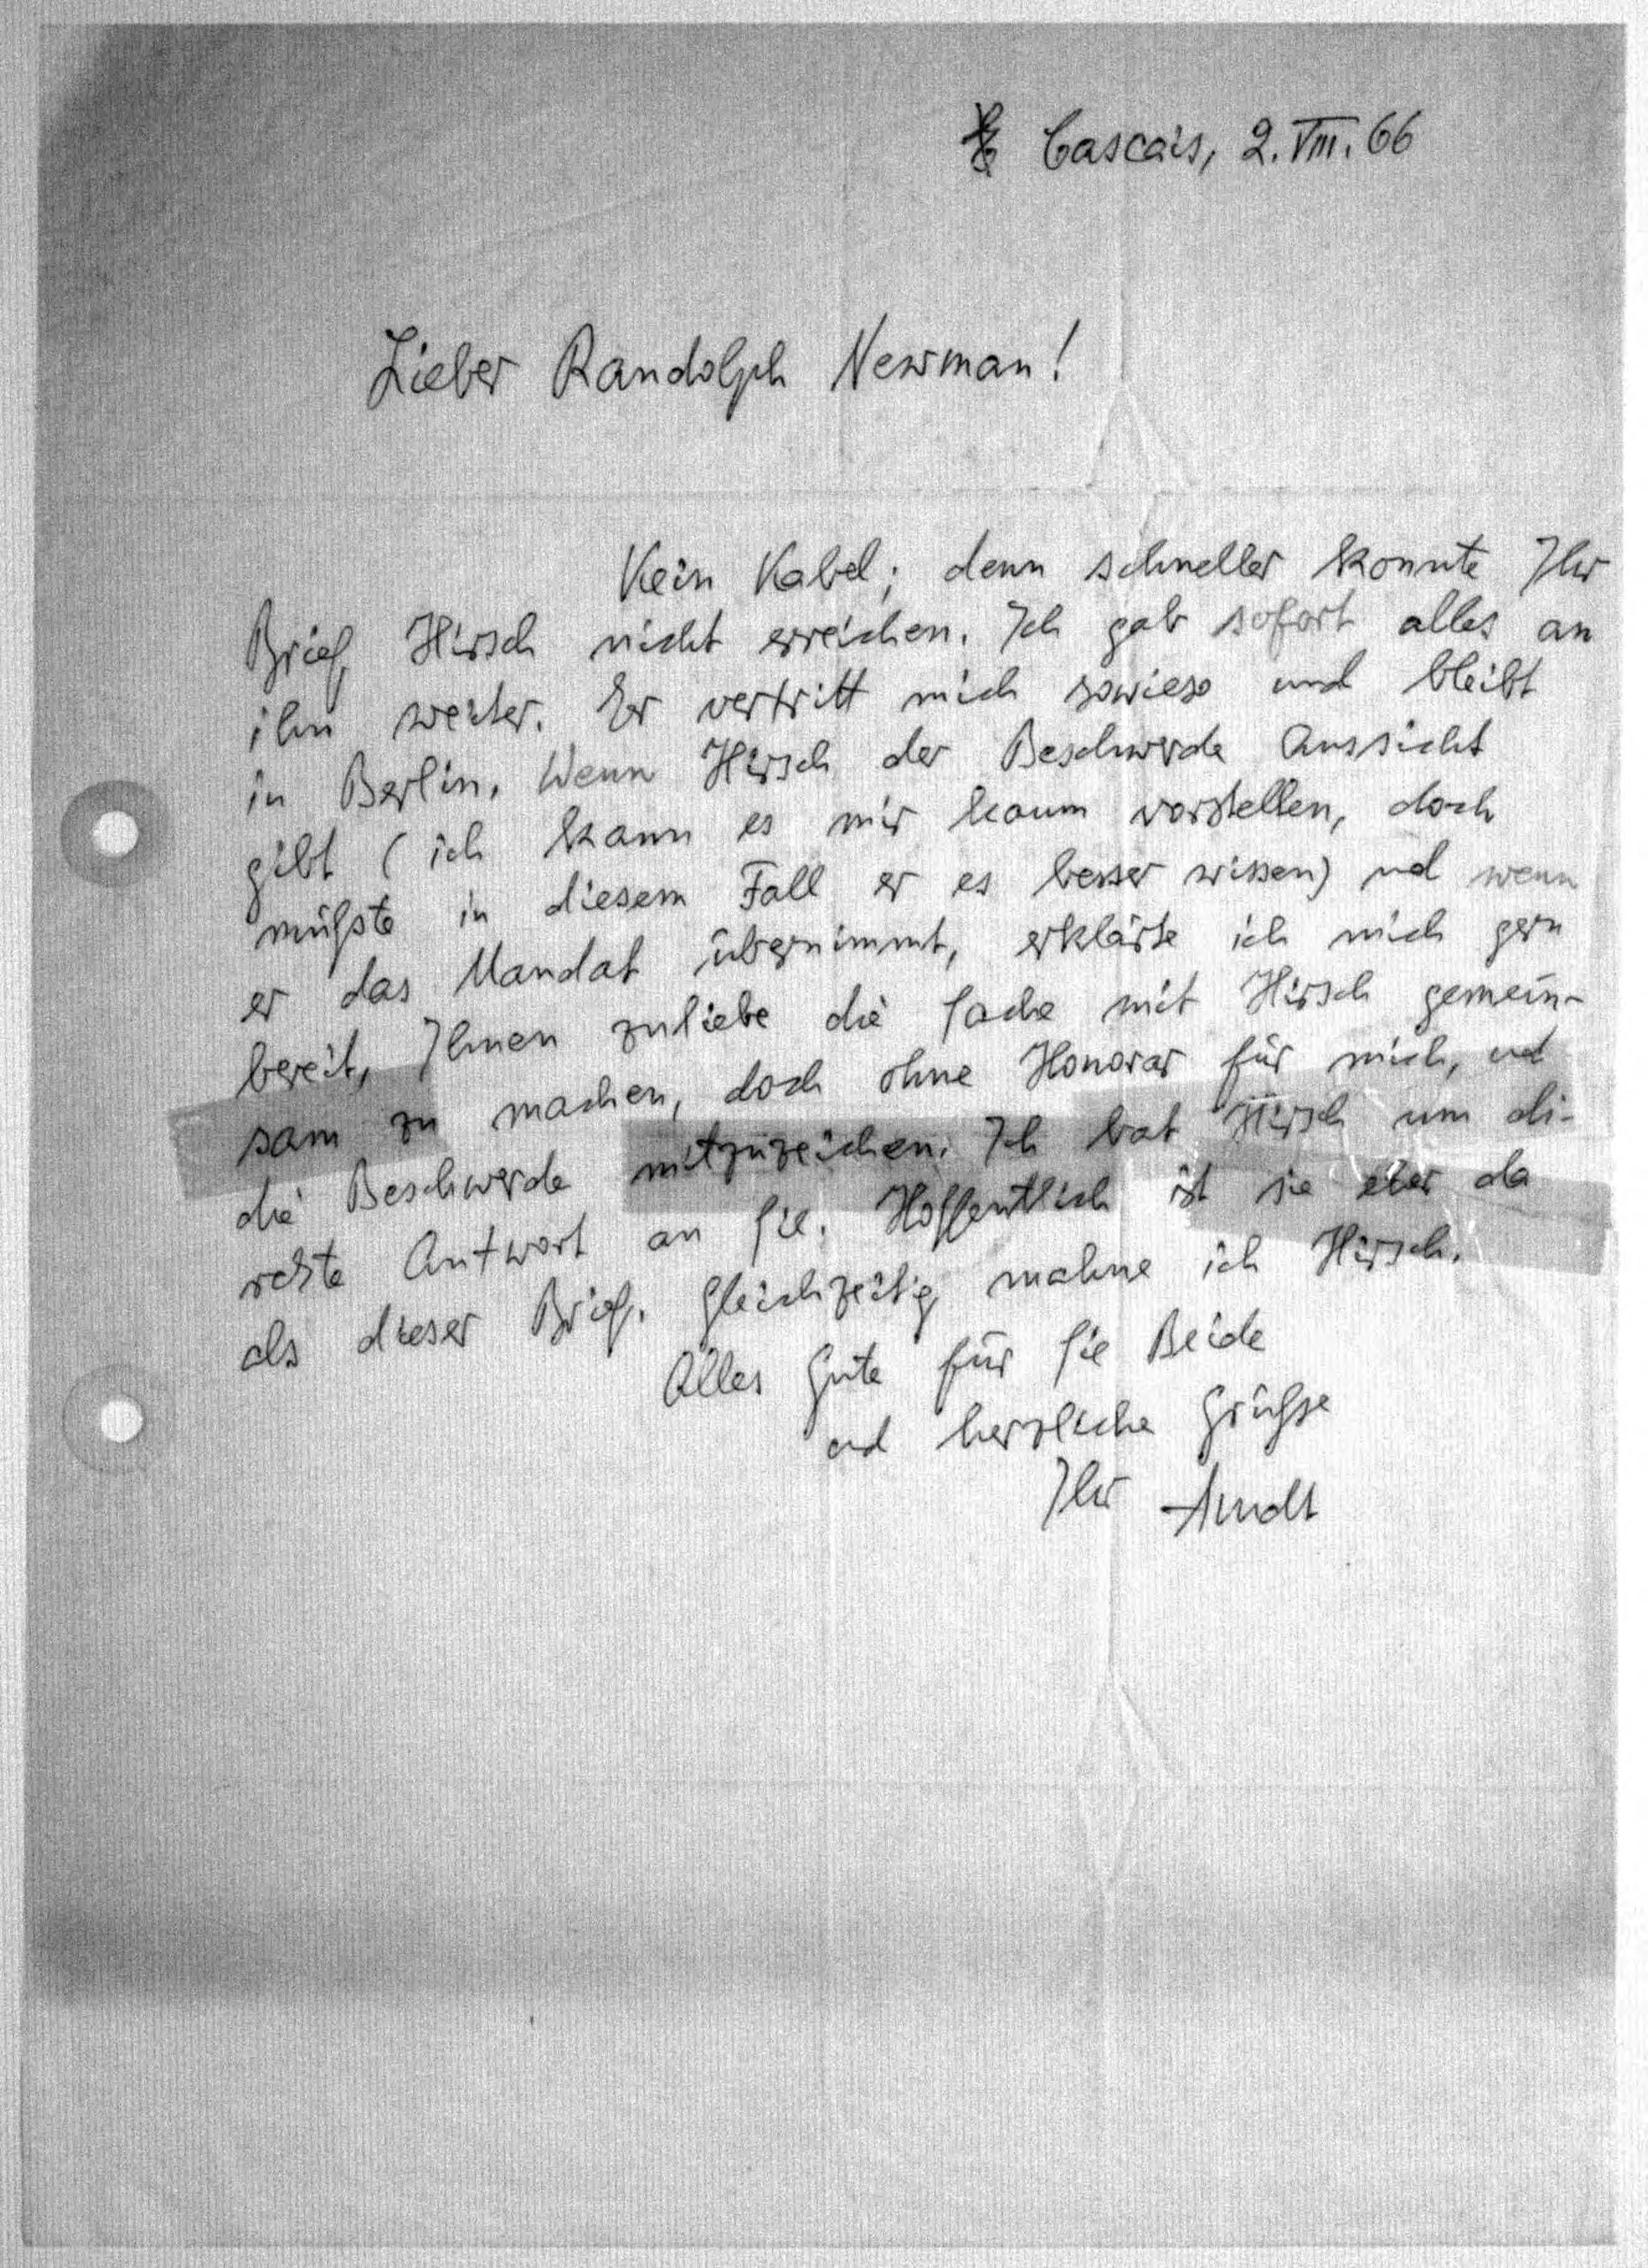 Cascais, 2. VIII. 66
Lieber Randolph Newman!
Kein Kabel; denn schneller konnte Ihr
Brief Hirsch nicht erreichen. Ich gab sofort alles an
ihn weiter. Er vertritt mich sowieso und bleibt
in Berlin. Wenn Hirsch der Beschwerde Aussicht
gibt (ich kann es mir kaum vorstellen, doch
müßte in diesem Fall er es besser wissen) und wenn
er das Mandat übernimmt, erklärte ich mich gern
bereit, Ihnen zuliebe die Sache mit Hirsch gemein-
sam zu machen, doch ohne Honorar für mich, und
die Beschwerde mitzuzeichen. Ich bat Hirsch um di-
rekte Antwort an Sie. Hoffentlich ist sie eher da
als dieser Brief. Gleichzeitig mahne ich Hirsch.
Alles Gute für Sie Beide
und herzliche Grüße
Ihr Arndt